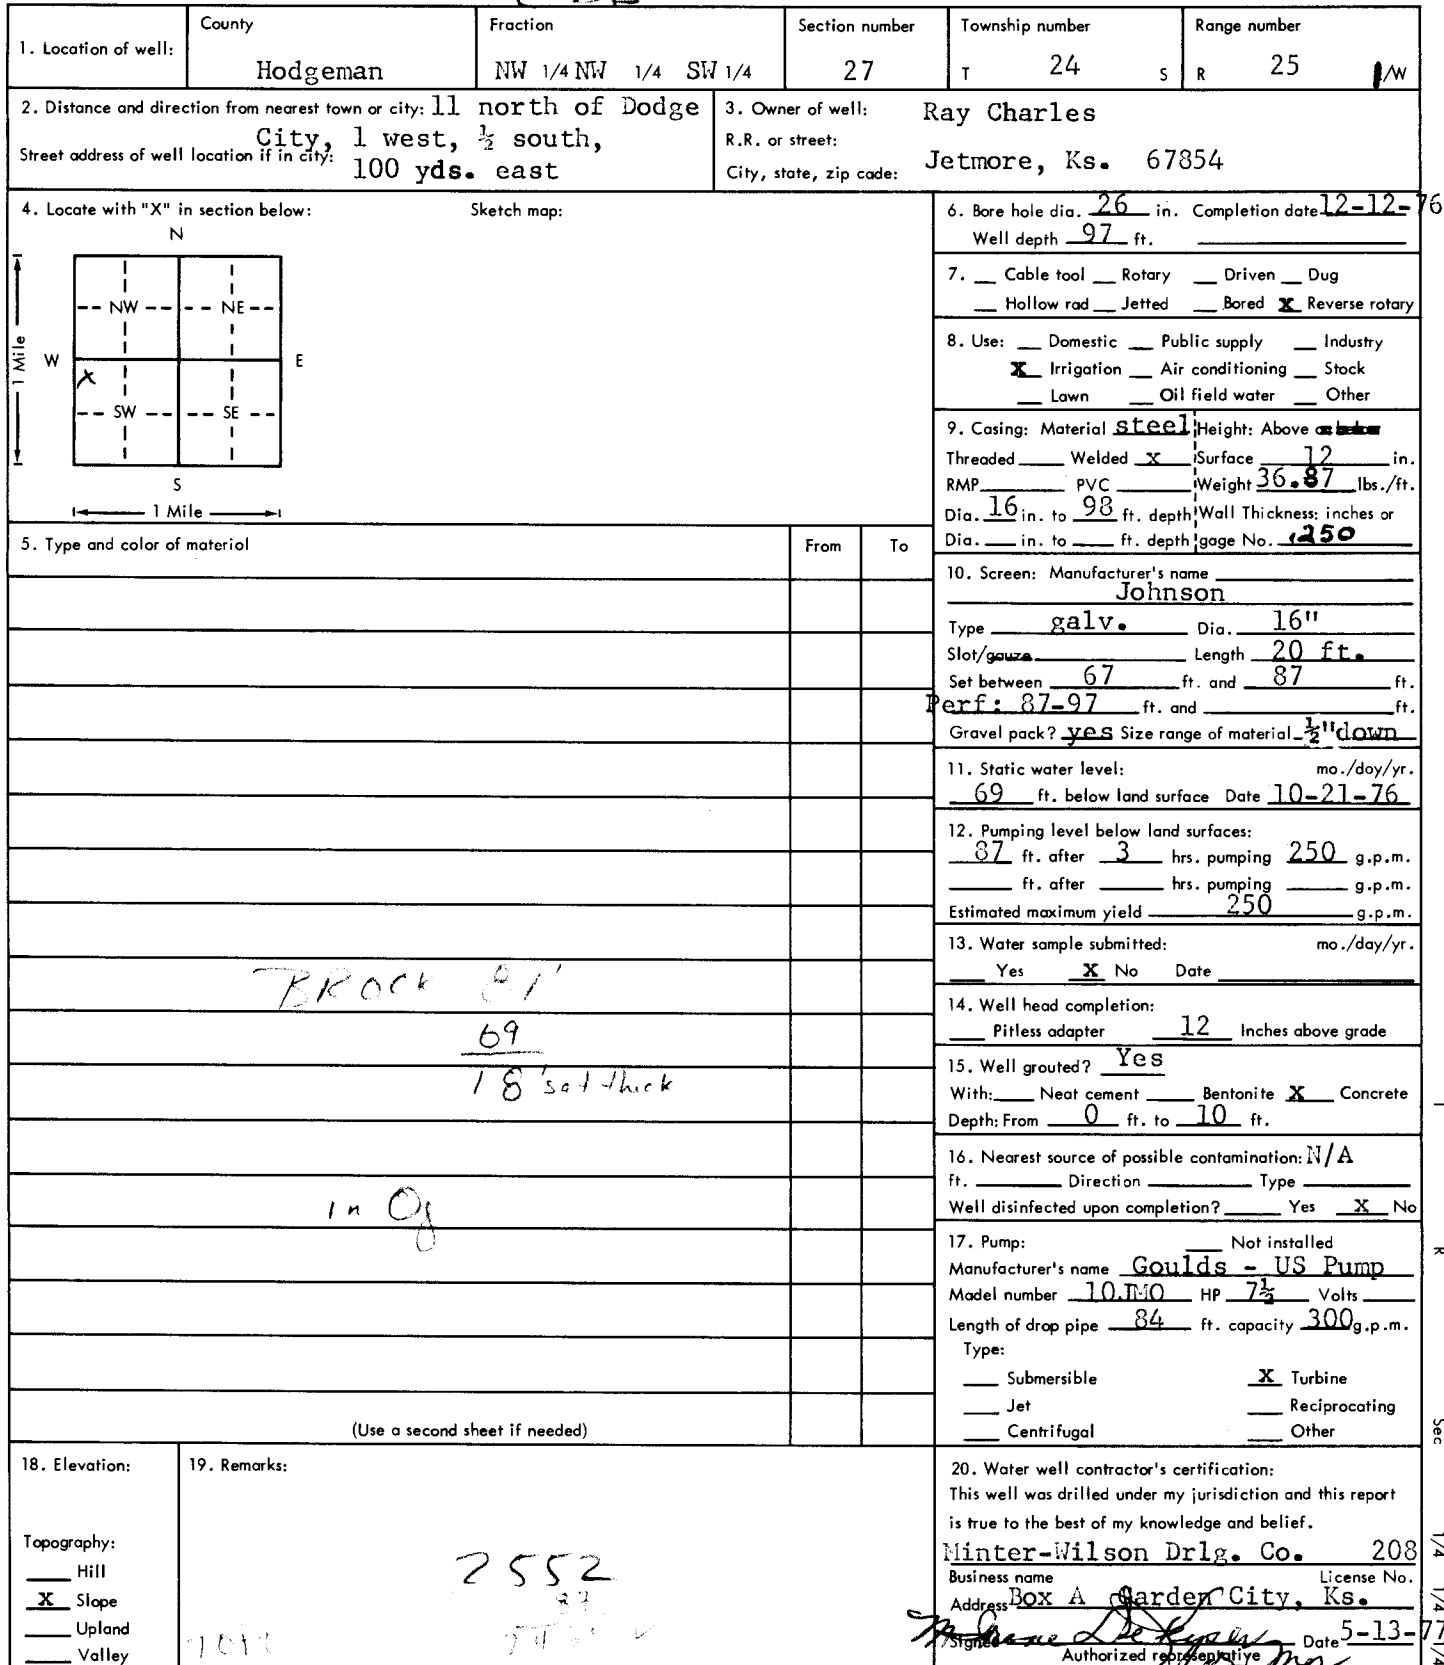 1. Location of well:
County
Hodgeman
Fraction
NW 1/4 NW 1/4 SW 1/4
Section number
27
Township number
T 24 S
Range number
R 25 /W
2. Distance and direction from nearest town or city: 11 north of Dodge
City, 1 west, ½ south,
Street address of well location if in city:
100 yds. east
3. Owner of well: Ray Charles
R.R. or street:
City, state, zip code: Jetmore, Ks. 67854
4. Locate with "X" in section below: Sketch map:
N
NW NE
1 Mile W E
X
SW SE
S
1 Mile
5. Type and color of material From To
BROCK 81'
69
18' sat thick
in Og
(Use a second sheet if needed)
6. Bore hole dia. 26 in. Completion date 12-12-76
Well depth 97 ft.
7. Cable tool Rotary Driven Dug
Hollow rad Jetted Bored X Reverse rotary
8. Use: Domestic Public supply Industry
X Irrigation Air conditioning Stock
Lawn Oil field water Other
9. Casing: Material steel Height: Above or below
Threaded Welded X Surface 12 in.
RMP PVC Weight 36.87 lbs./ft.
Dia. 16 in. to 98 ft. depth Wall Thickness: inches or
Dia. in. to ft. depth gage No. .250
10. Screen: Manufacturer's name
Johnson
Type galv. Dia. 16"
Slot/gauze Length 20 ft.
Set between 67 ft. and 87 ft.
Perf: 87-97 ft. and ft.
Gravel pack? yes Size range of material ½" down
11. Static water level: mo./day/yr.
69 ft. below land surface Date 10-21-76
12. Pumping level below land surfaces:
87 ft. after 3 hrs. pumping 250 g.p.m.
ft. after hrs. pumping g.p.m.
Estimated maximum yield 250 g.p.m.
13. Water sample submitted: mo./day/yr.
Yes X No Date
14. Well head completion:
Pitless adapter 12 Inches above grade
15. Well grouted? Yes
With: Neat cement Bentonite X Concrete
Depth: From 0 ft. to 10 ft.
16. Nearest source of possible contamination: N/A
ft. Direction Type
Well disinfected upon completion? Yes X No
17. Pump: Not installed
Manufacturer's name Goulds - US Pump
Model number 10JMO HP 7½ Volts
Length of drop pipe 84 ft. capacity 300 g.p.m.
Type:
Submersible X Turbine
Jet Reciprocating
Centrifugal Other
18. Elevation:
Topography:
Hill
X Slope
Upland
Valley
19. Remarks:
2552
20. Water well contractor's certification:
This well was drilled under my jurisdiction and this report
is true to the best of my knowledge and belief.
Minter-Wilson Drlg. Co. 208
Business name License No.
Address Box A Garden City, Ks.
Signed Date 5-13-77
Authorized representative
R
Sec
1/4
1/4
1/4